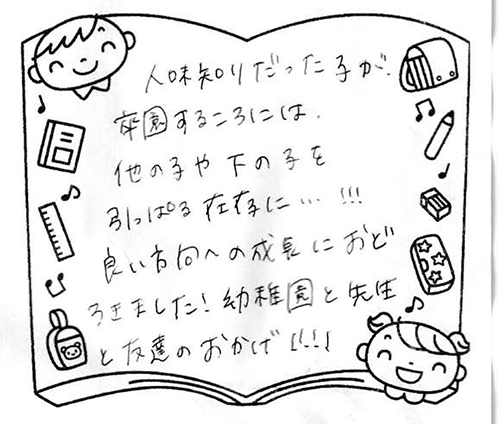 人味知りだった子が、
卒園するころには、
他の子や下の子を
引っぱる存在に…!!!
良い方向への成長におど
ろきました!幼稚園と先生
と友達のおかげ!!!!